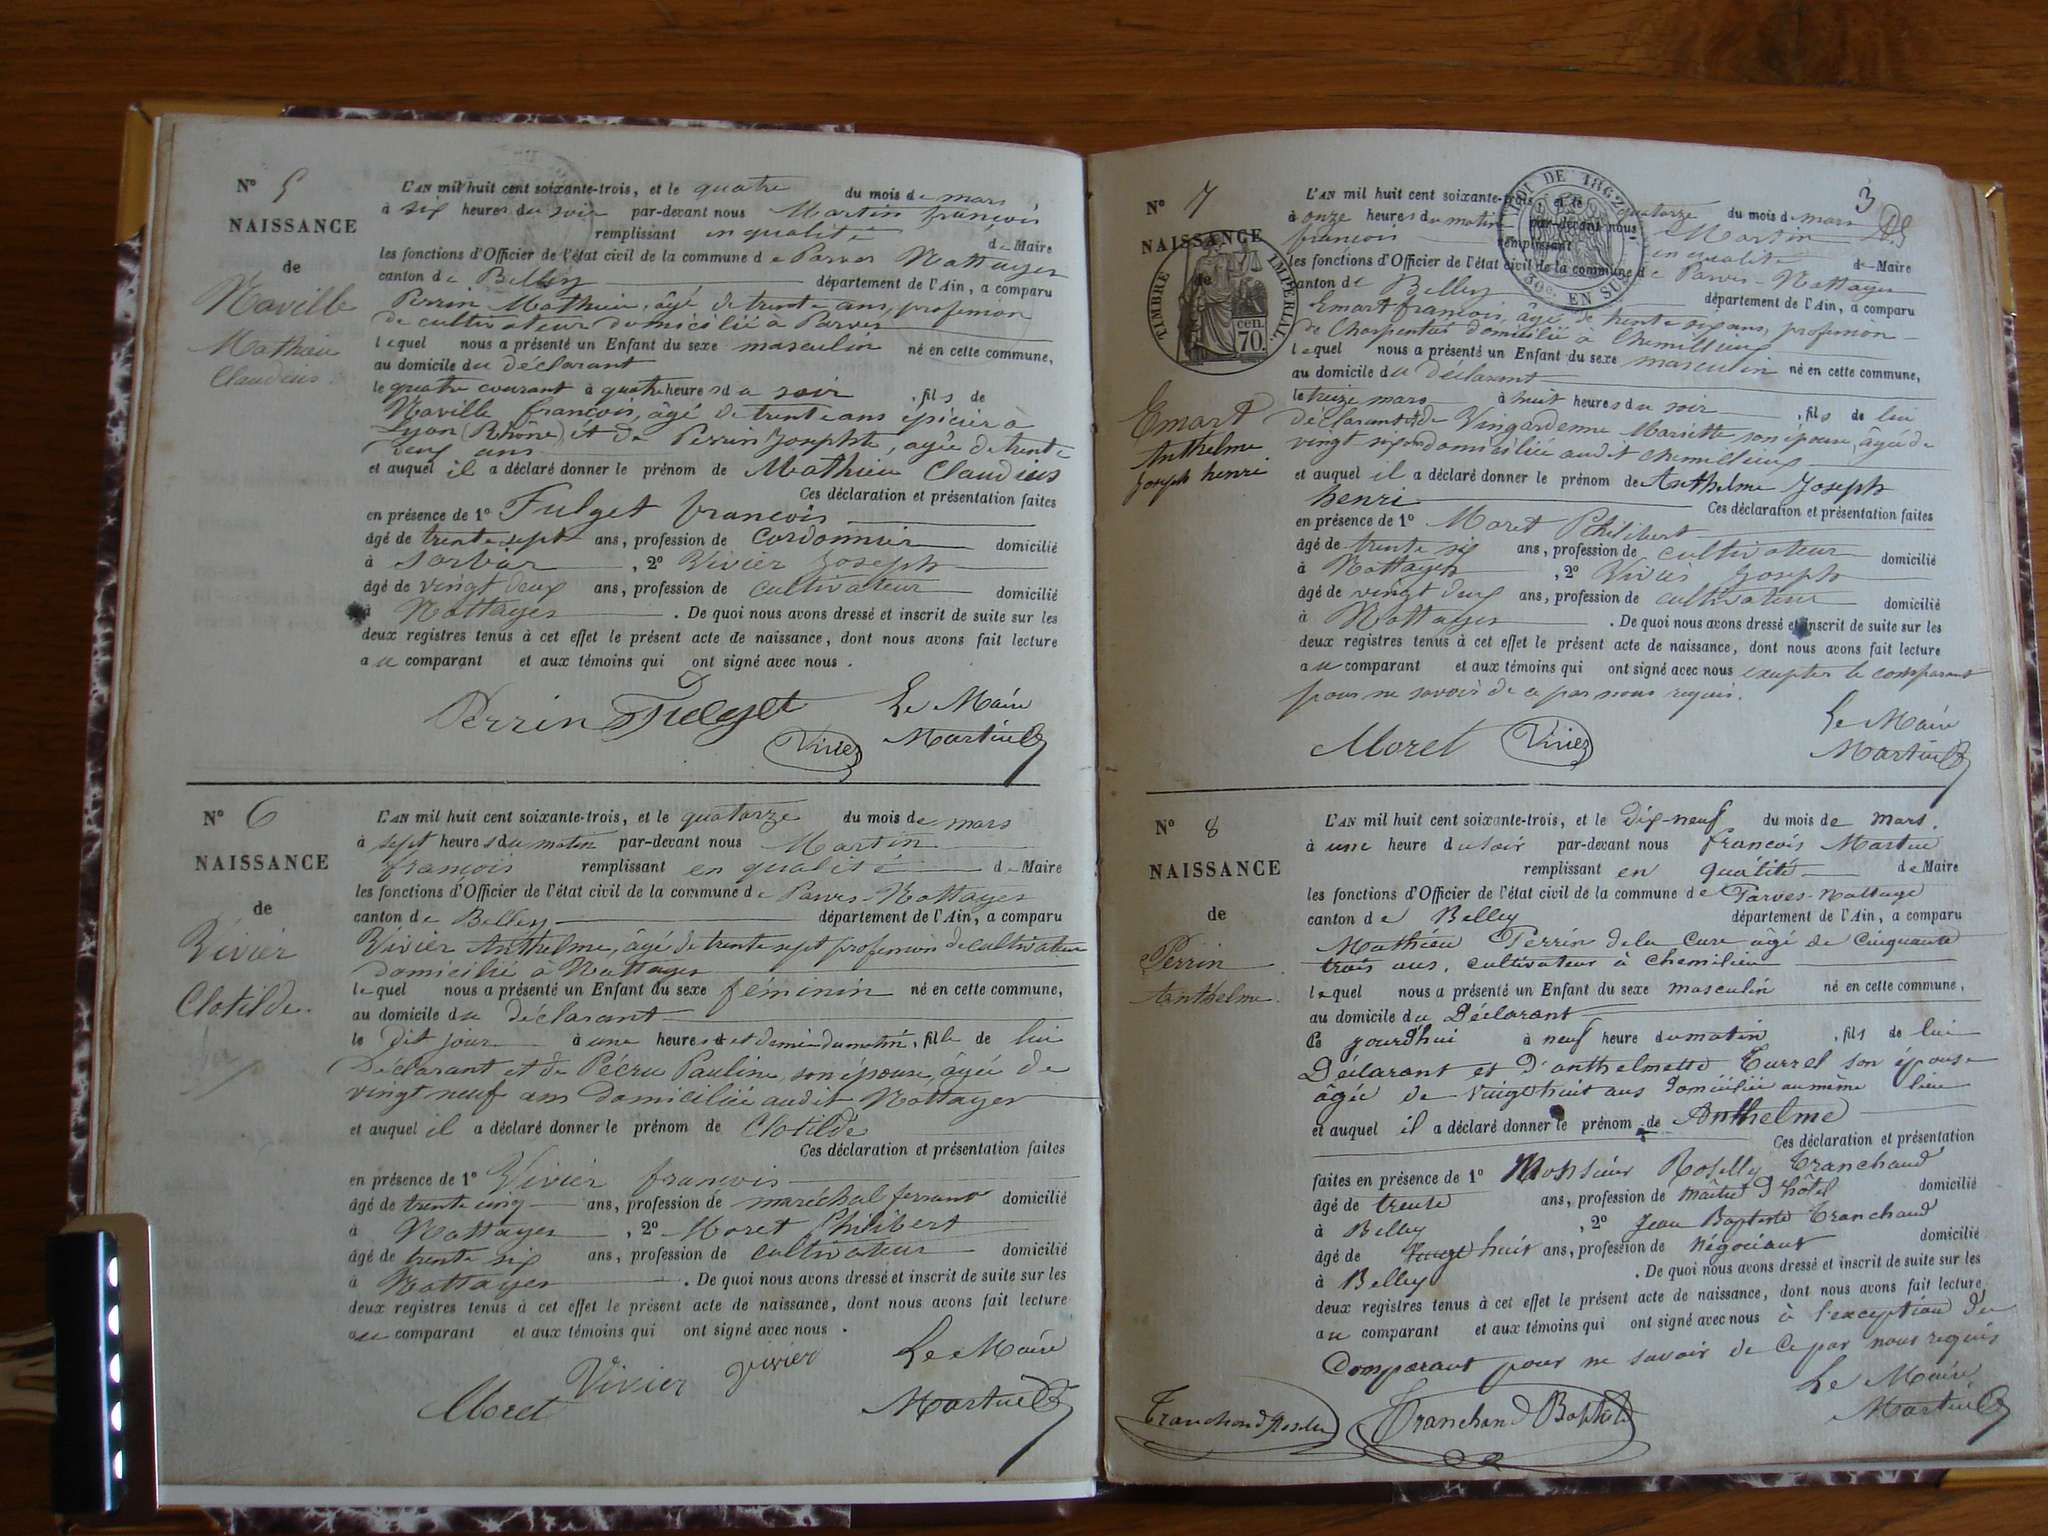 N° 5
NAISSANCE
de
Naville
Mathieu
Claudius.
L'AN mil huit cent soixante-trois, et le quatre du mois de mars
à six heures du soir par-devant nous Martin françois
remplissant en qualité de Maire
les fonctions d'Officier de l'état civil de la commune de Parves Nattages
canton de Belley département de l'Ain, a comparu
Perrin Mathieu, âgé de trente ans, profession
de cultivateur domicilié à Parves
lequel nous a présenté un Enfant du sexe masculin né en cette commune,
au domicile du déclarant
le quatre courant à quatre heures du soir, fils de
Naville françois, âgé de trente ans épicier à
Lyon (Rhône) et de Perrin Josephte, agée de trente
deux ans
et auquel il a déclaré donner le prénom de Mathieu Claudius
Ces déclaration et présentation faites
en présence de 1° Fulget françois
âgé de trente sept ans, profession de cordonnier domicilié
à Sorbier, 2° Vivier Joseph
âgé de vingt deux ans, profession de cultivateur domicilié
à Nattages. De quoi nous avons dressé et inscrit de suite sur les
deux registres tenus à cet effet le présent acte de naissance, dont nous avons fait lecture
au comparant et aux témoins qui ont signé avec nous.
Perrin Fulget Le Maire
Vivier Martin
N° 6
NAISSANCE
de
Vivier
Clotilde.
L'AN mil huit cent soixante-trois, et le quatorze du mois de mars
à sept heures du matin par-devant nous Martin
françois remplissant en qualité de Maire
les fonctions d'Officier de l'état civil de la commune de Parves-Nattages
canton de Belley département de l'Ain, a comparu
Vivier Anthelme, âgé de trente sept profession de cultivateur
domicilié à Nattages
lequel nous a présenté un Enfant du sexe féminin né en cette commune,
au domicile du déclarant
le dit jour à une heures et demie du matin, fille de lui
Déclarant et de Pécru Pauline, son épouse, âgée de
vingt neuf ans domiciliée audit Nattages
et auquel il a déclaré donner le prénom de Clotilde
Ces déclaration et présentation faites
en présence de 1° Vivier françois
âgé de trente cinq ans, profession de maréchal ferrant domicilié
à Nattages, 2° Moret Philibert
âgé de trente six ans, profession de cultivateur domicilié
à Nattages. De quoi nous avons dressé et inscrit de suite sur les
deux registres tenus à cet effet le présent acte de naissance, dont nous avons fait lecture
au comparant et aux témoins qui ont signé avec nous.
Vivier Vivier Le Maire
Moret Martin
3
N° 7
NAISSANCE
de
TIMBRE IMPERIAL
cen. 70.
LOI DE 1862
30c. EN SUS
Emart
Anthelme
Joseph henri
L'AN mil huit cent soixante-trois, et le quatorze du mois de mars
à onze heures du matin par-devant nous Martin
françois remplissant en qualité de Maire
les fonctions d'Officier de l'état civil de la commune de Parves-Nattages
canton de Belley département de l'Ain, a comparu
Emart françois, âgé de trente six ans, profession
de Charpentier domicilié à Chemillieux
lequel nous a présenté un Enfant du sexe masculin né en cette commune,
au domicile du déclarant
le treize mars à huit heures du soir, fils de lui
déclarant et de Vingardenne Mariette son épouse, âgée de
vingt six ans domiciliée audit Chemillieux
et auquel il a déclaré donner le prénom de Anthelme Joseph
henri Ces déclaration et présentation faites
en présence de 1° Moret Philibert
âgé de trente six ans, profession de cultivateur domicilié
à Nattages, 2° Vivier Joseph
âgé de vingt deux ans, profession de cultivateur domicilié
à Nattages. De quoi nous avons dressé et inscrit de suite sur les
deux registres tenus à cet effet le présent acte de naissance, dont nous avons fait lecture
au comparant et aux témoins qui ont signé avec nous excepter le comparant
pour ne savoir de ce par nous requis.
Le Maire
Moret Vivier Martin
N° 8
NAISSANCE
de
Perrin
Anthelme.
L'AN mil huit cent soixante-trois, et le dix-neuf du mois de mars.
à une heure du soir par-devant nous françois Martin
remplissant en qualité de Maire
les fonctions d'Officier de l'état civil de la commune de Parves-Nattage
canton de Belley département de l'Ain, a comparu
Mathieu Perrin de la Cure âgé de cinquante
trois ans, cultivateur à Chemilieu
lequel nous a présenté un Enfant du sexe masculin né en cette commune,
au domicile du Déclarant
ce jourd'hui à neuf heure du matin, fils de lui
Déclarant et d'anthelmette Turrel son épouse
âgée de vingt huit ans domiciliée au même lieu
et auquel il a déclaré donner le prénom de Anthelme
Ces déclaration et présentation
faites en présence de 1° Monsieur Roselly Tranchand
âgé de trente ans, profession de maître d'hôtel domicilié
à Belley, 2° Jean Baptiste Tranchand
âgé de vingt huit ans, profession de Négociant domicilié
à Belley. De quoi nous avons dressé et inscrit de suite sur les
deux registres tenus à cet effet le présent acte de naissance, dont nous avons fait lecture
au comparant et aux témoins qui ont signé avec nous à l'exception du
Comparant pour ne savoir de ce par nous requis
Le Maire
Tranchand Tranchand Baptiste Martin